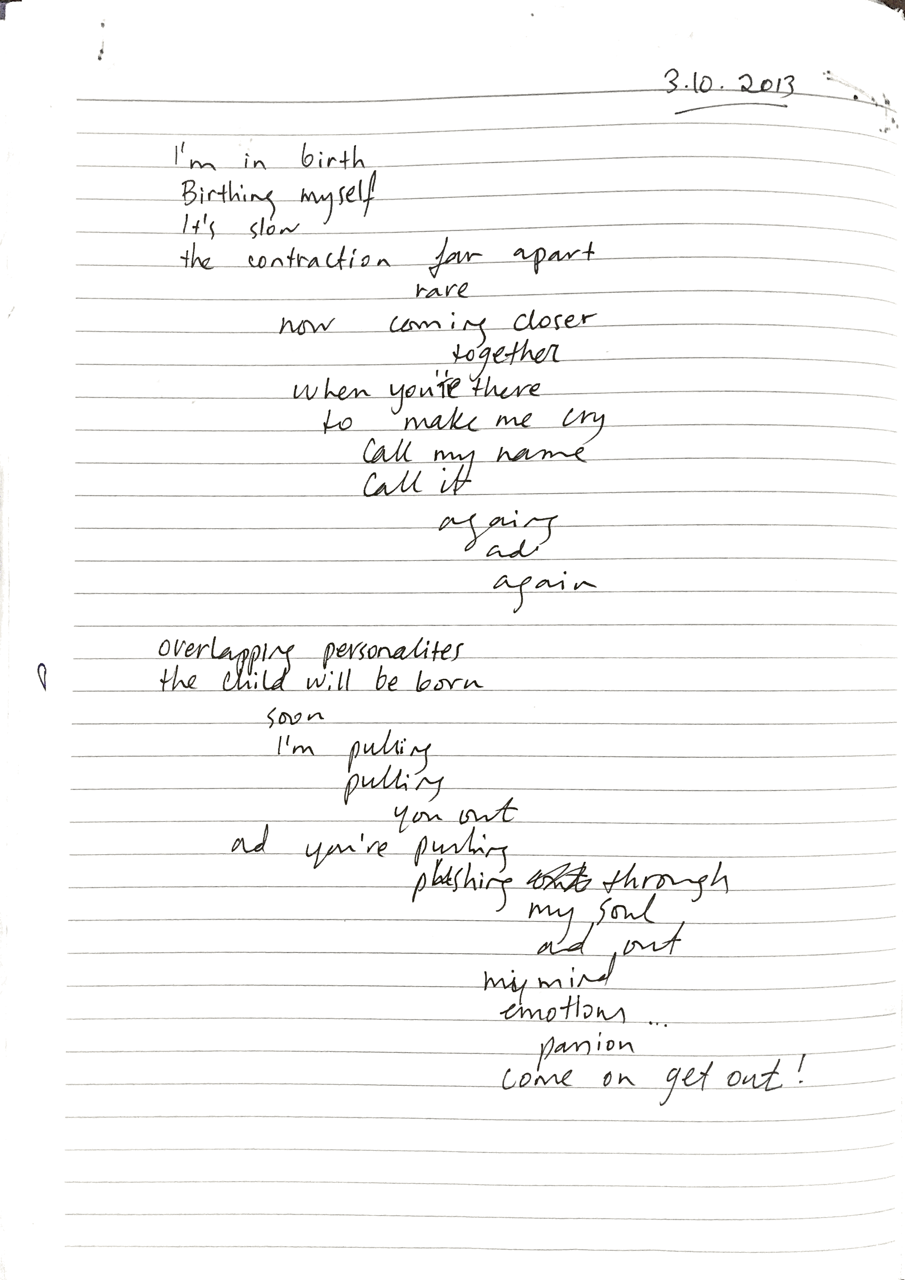 3.10.2013
I'm in birth
Birthing myself
It's slow
the contraction far apart
rare
now coming closer
together
when you're there
to make me cry
Call my name
Call it
again
ad
again
overlapping personalites
the child will be born
soon
I'm pulling
pulling
you out
ad you're pushing
pushing through
my soul
ad out
my mind
emotions ...
passion
come on get out!